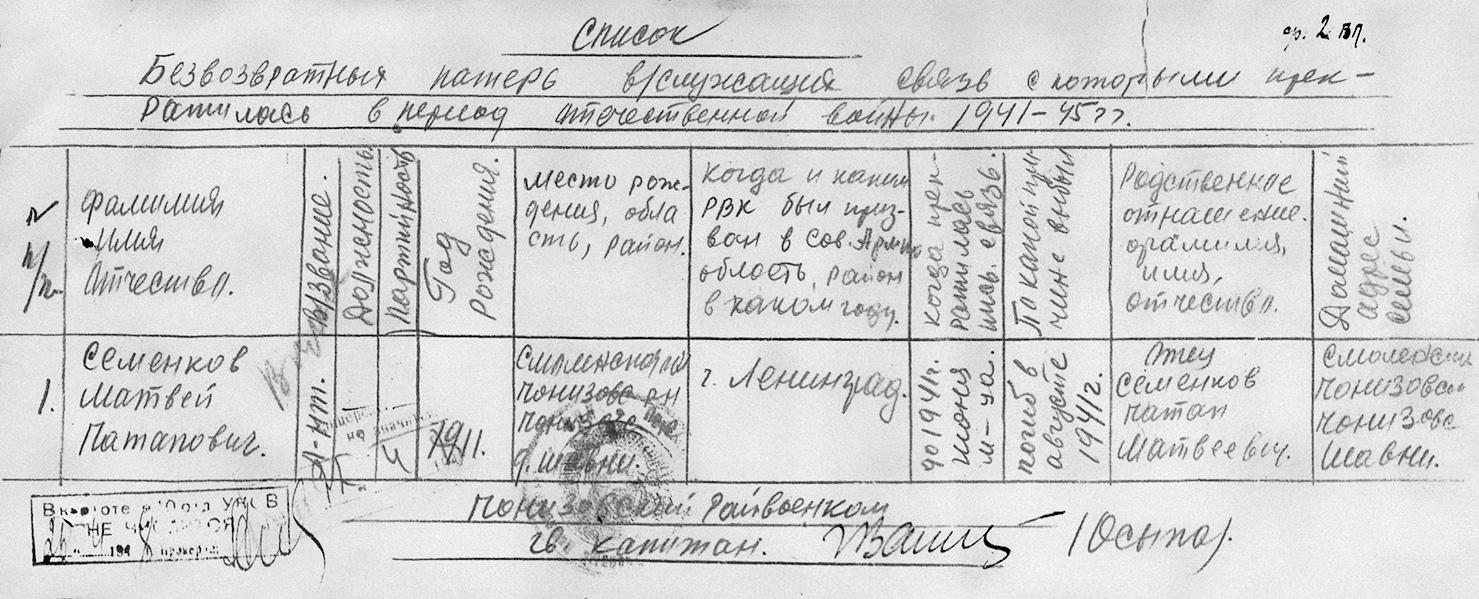 Список
2
Безвозвратных патерь в/служащих связь с которыми прек-
ратилась в период Отечественной войны 1941-45 гг.
№
п/п
Фамилия
имя
Отчество.
В/Звание.
Должность.
Партийность
Год
рождения.
Место рож-
дения, обла
сть, район.
Когда и каким
РВК был приз-
ван в Сов. Армию
область, район
в каком году.
когда прек-
ратилась
пись. связь.
По какой при-
чине выбыл
Родственное
отнашение.
фамилия,
имя,
отчество.
Дамашний
адрес
семьи.
1.
Семенков
Матвей
Патапович.
1911.
Понизовс р-н
д. Шавни.
г. Ленинград.
до 1941г.
июня
м-ца.
погиб в
августе
1941г.
Отец
Семенков
Патап
Матвеевич.
Смоленск
Понизовск
Понизовс
Шавни.
УК В
НЕ
194
провер
Понизовский Райвоенком
гв. капитан.
(Осипа).